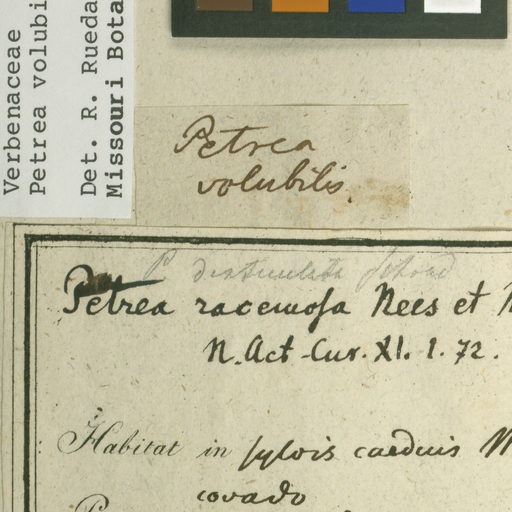 Verbenaceae
Petrea volubi
Det. R. Rueda
Missouri Bota
Petrea
volubilis.
P
Petrea racemosa Nees et
N. Act. Cur. XI. 1. 72.
Habitat in sylvis caeduis
covado